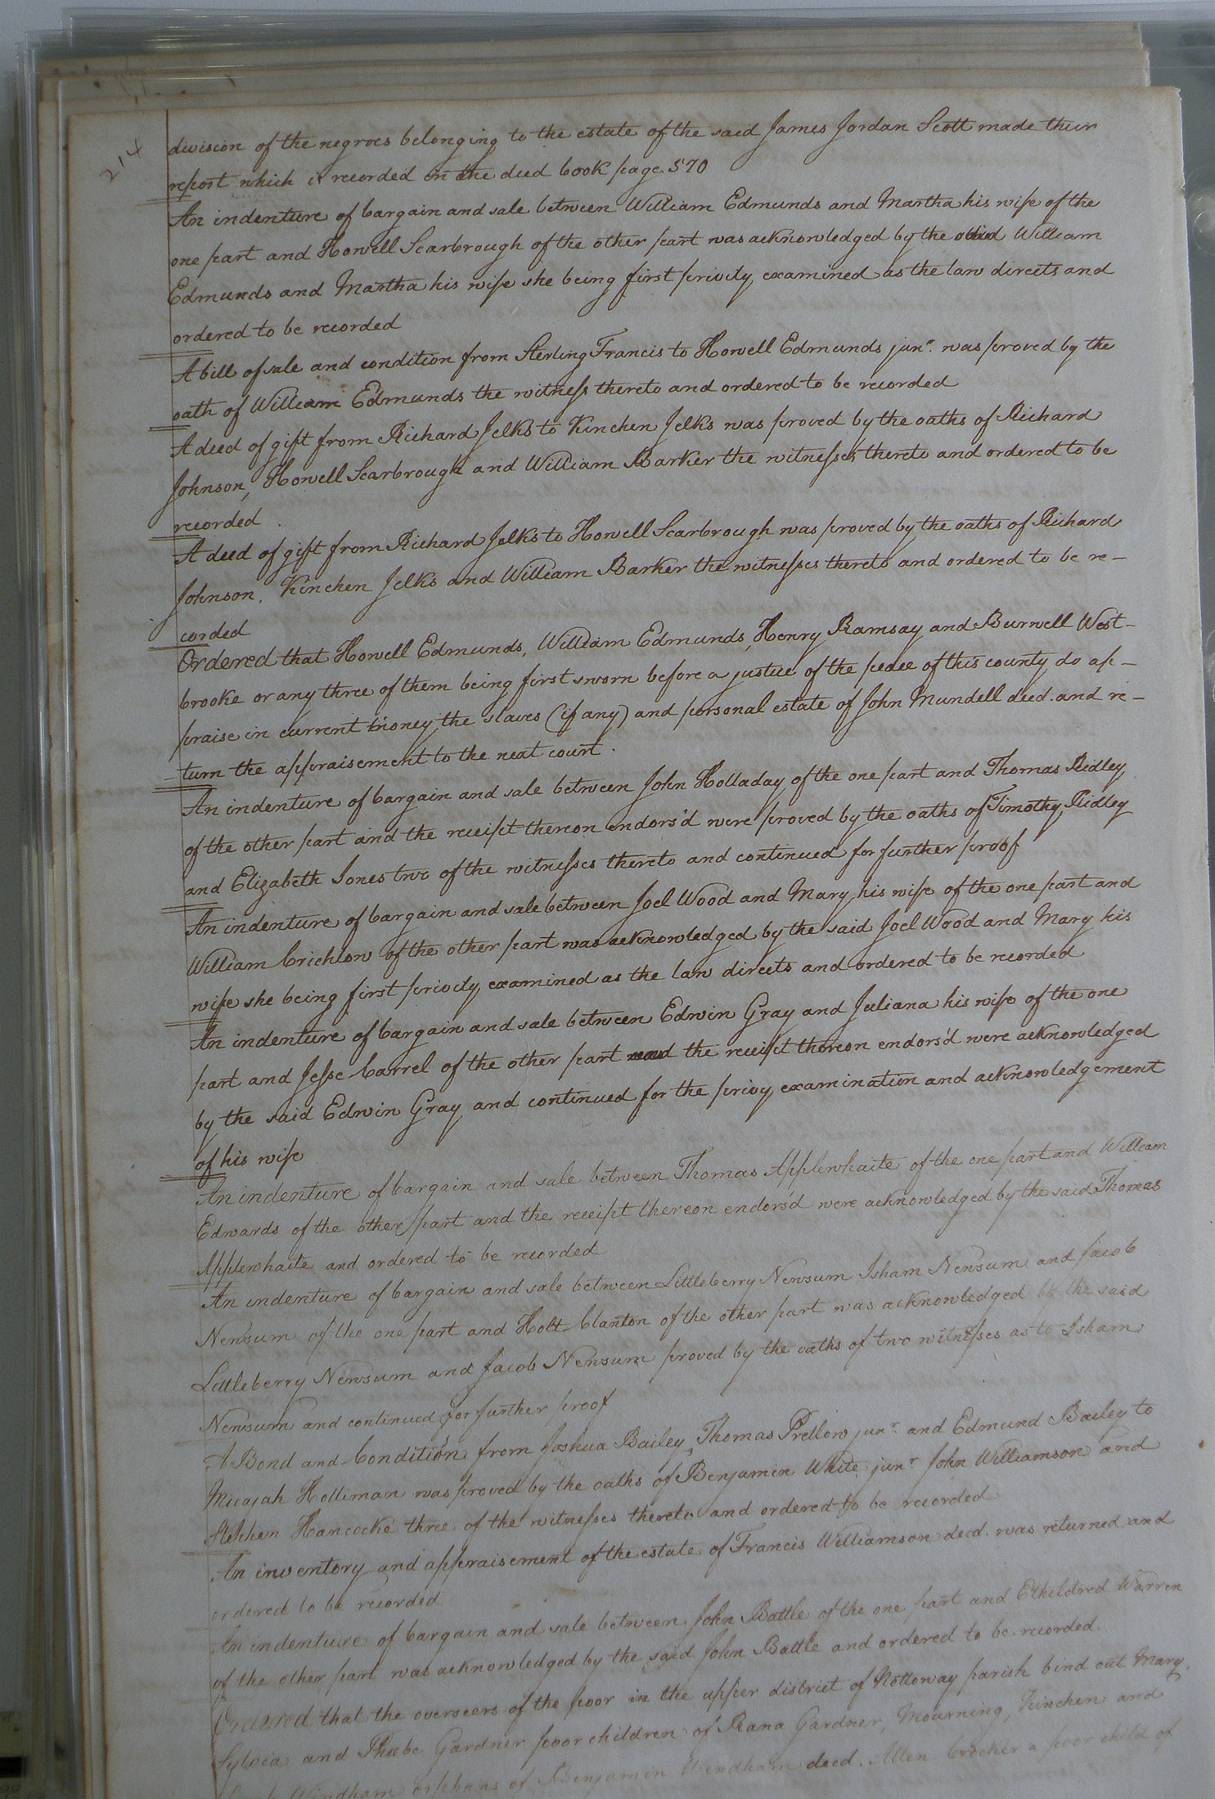 214
division of the negroes belonging to the estate of the said James Jordan Scott made their
report which is recorded in the deed book page 570
An indenture of bargain and sale between William Edmunds and Martha his wife of the
one part and Howell Scarbrough of the other part was acknowledged by the said William
Edmunds and Martha his wife she being first privily examined as the law directs and
ordered to be recorded
A bill of sale and condition from Sterling Francis to Howell Edmunds junr. was proved by the
oath of William Edmunds the witness thereto and ordered to be recorded
A deed of gift from Richard Jelks to Kinchen Jelks was proved by the oaths of Richard
Johnson, Howell Scarbrough and William Barker the witnesses thereto and ordered to be
recorded.
A deed of gift from Richard Jelks to Howell Scarbrough was proved by the oaths of Richard
Johnson, Kinchen Jelks and William Barker the witnesses thereto and ordered to be re-
corded
Ordered that Howell Edmunds, William Edmunds, Henry Ramsay and Burwell West-
brooke or any three of them being first sworn before a justice of the peace of this county do ap-
praise in current money the slaves (if any) and personal estate of John Mundell decd. and re-
turn the appraisement to the next court.
An indenture of bargain and sale between John Holladay of the one part and Thomas Ridley
of the other part and the receipt thereon endors'd were proved by the oaths of Timothy Ridley
and Elizabeth Jones two of the witnesses thereto and continued for further proof
An indenture of bargain and sale between Joel Wood and Mary his wife of the one part and
William Crichlow of the other part was acknowledged by the said Joel Wood and Mary his
wife she being first privily examined as the law directs and ordered to be recorded
An indenture of bargain and sale between Edwin Gray and Juliana his wife of the one
part and Jesse Carrel of the other part and the receipt thereon endors'd were acknowledged
by the said Edwin Gray and continued for the privy examination and acknowledgement
of his wife
An indenture of bargain and sale between Thomas Applewhaite of the one part and William
Edwards of the other part and the receipt thereon endors'd were acknowledged by the said Thomas
Applewhaite and ordered to be recorded
An indenture of bargain and sale between Littleberry Newsum Isham Newsum and Jacob
Newsum of the one part and Holt Clanton of the other part was acknowledged by the said
Littleberry Newsum and Jacob Newsum proved by the oaths of two witnesses as to Isham
Newsum and continued for further proof
A Bond and Condition from Joshua Bailey, Thomas Pretlow junr. and Edmund Bailey to
Micajah Holliman was proved by the oaths of Benjamin White junr. John Williamson and
Stephen Hancocke three of the witnesses thereto and ordered to be recorded
An inventory and appraisement of the estate of Francis Williamson decd. was returned and
ordered to be recorded
An indenture of bargain and sale between John Battle of the one part and Etheldred Warren
of the other part was acknowledged by the said John Battle and ordered to be recorded.
Ordered that the overseers of the poor in the upper district of Nottoway parish bind out Mary,
Sylvia and Phebe Gardner poor children of Rana Gardner, Mourning, Kinchen and
Windham orphans of Benjamin Windham decd. Allen Crocker a poor child of